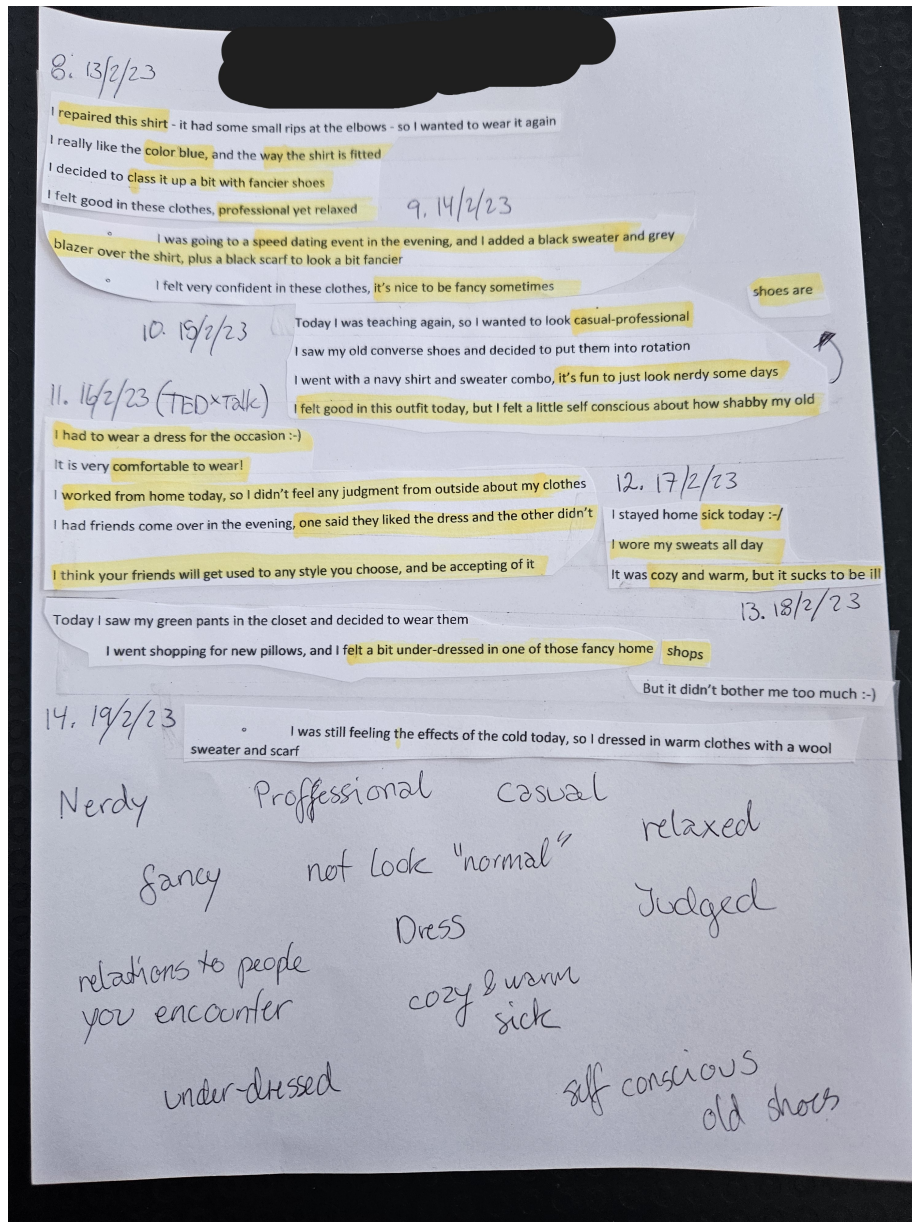 8. 13/2/23
I repaired this shirt - it had some small rips at the elbows - so I wanted to wear it again
I really like the color blue, and the way the shirt is fitted
I decided to class it up a bit with fancier shoes
I felt good in these clothes, professional yet relaxed
9. 14/2/23
I was going to a speed dating event in the evening, and I added a black sweater and grey
blazer over the shirt, plus a black scarf to look a bit fancier
I felt very confident in these clothes, it's nice to be fancy sometimes
10. 15/2/23
Today I was teaching again, so I wanted to look casual-professional
I saw my old converse shoes and decided to put them into rotation
I went with a navy shirt and sweater combo, it's fun to just look nerdy some days
I felt good in this outfit today, but I felt a little self conscious about how shabby my old
shoes are
11. 16/2/23 (TEDxTalk)
I had to wear a dress for the occasion :-)
It is very comfortable to wear!
I worked from home today, so I didn't feel any judgment from outside about my clothes
I had friends come over in the evening, one said they liked the dress and the other didn't
I think your friends will get used to any style you choose, and be accepting of it
12. 17/2/23
I stayed home sick today :-/
I wore my sweats all day
It was cozy and warm, but it sucks to be ill
13. 18/2/23
Today I saw my green pants in the closet and decided to wear them
I went shopping for new pillows, and I felt a bit under-dressed in one of those fancy home shops
But it didn't bother me too much :-)
14. 19/2/23
I was still feeling the effects of the cold today, so I dressed in warm clothes with a wool
sweater and scarf
Nerdy
Proffessional
casual
relaxed
fancy
not look "normal"
Judged
Dress
relations to people
you encounter
cozy & warm
sick
under-dressed
self conscious
old shoes